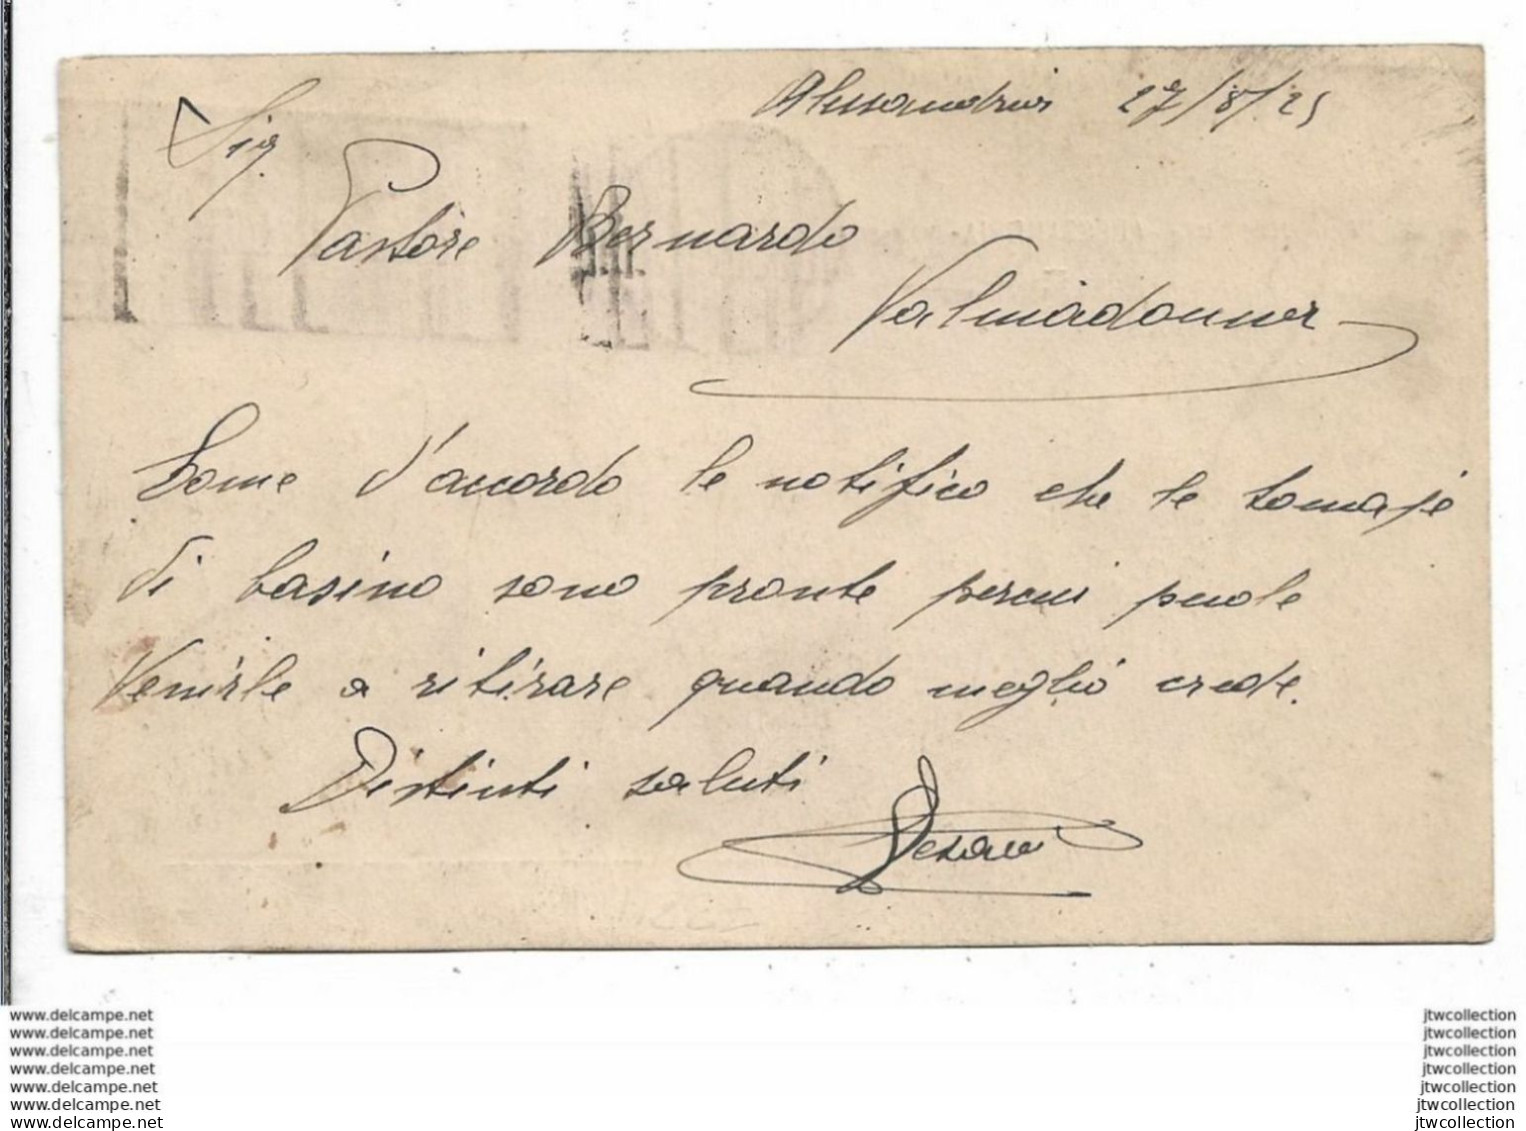 Alessandria 27/8/25
Sig.
Pastore Bernardo
Valmadonna
Come d'accordo le notifico che le tomaje
di basino sono pronte percui puole
Venirle a ritirare quando meglio crede.
Distinti saluti
www.delcampe.net jtwcollection
www.delcampe.net jtwcollection
www.delcampe.net jtwcollection
www.delcampe.net jtwcollection
www.delcampe.net jtwcollection
www.delcampe.net jtwcollection
www.delcampe.net jtwcollection